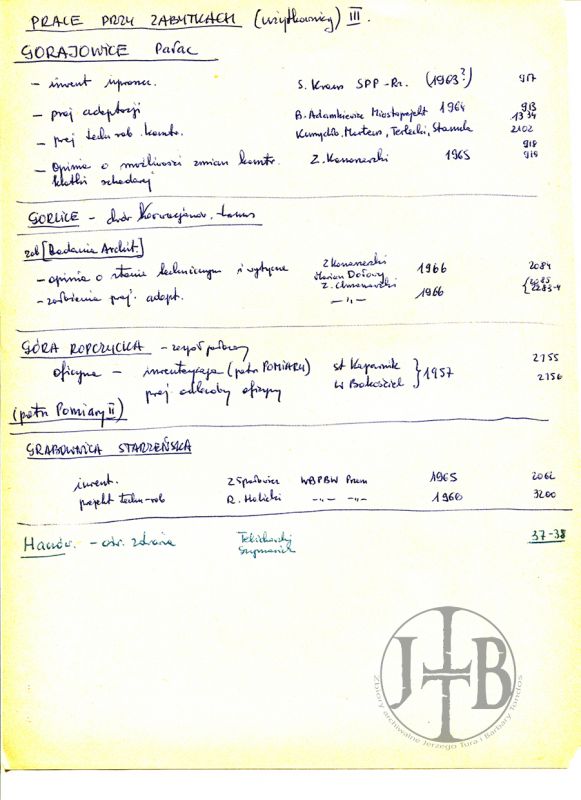 PRACE PRZY ZABYTKACH (użytkownicy) III.
GORAJOWICE Pałac
- inwent. uproszcz. S. Kraus SPP-Rz. (1963?) 917
- proj adaptacji B. Adamkiewicz Miastoprojekt 1964 913
1334
- proj techn rob. konstr. Kumydło, Martens, Terlecki, Stanula 2102
- Opinia o możliwości zmian konstr. Z. Kononerski 1965 918
klatki schodowej 919
GORLICE - dwór Karwacjanów.
zob [Badania Archit.]
- opinia o stanie technicznym i wytyczne 1966 2084
- założenia proj. adapt. -"- 1966 2085
GÓRA ROPCZYCKA - zespół pałacowy
oficyna - inwentaryzacja (patrz POMIARY) st Kapuśnik 2755
proj odbudowy oficyny W Bokościel } 1957 2756
(patrz Pomiary II)
GRABOWNICA STARZEŃSKA
inwent. WBPBW Przem 1965 2062
projekt techn-rob R. Holicki -"- -"- 1966 3200
Haczów. - ośr. zdrowia 37-38
Szymaniak
JTBT
Zbiory archiwalne Jerzego Tura i Barbary Tondos